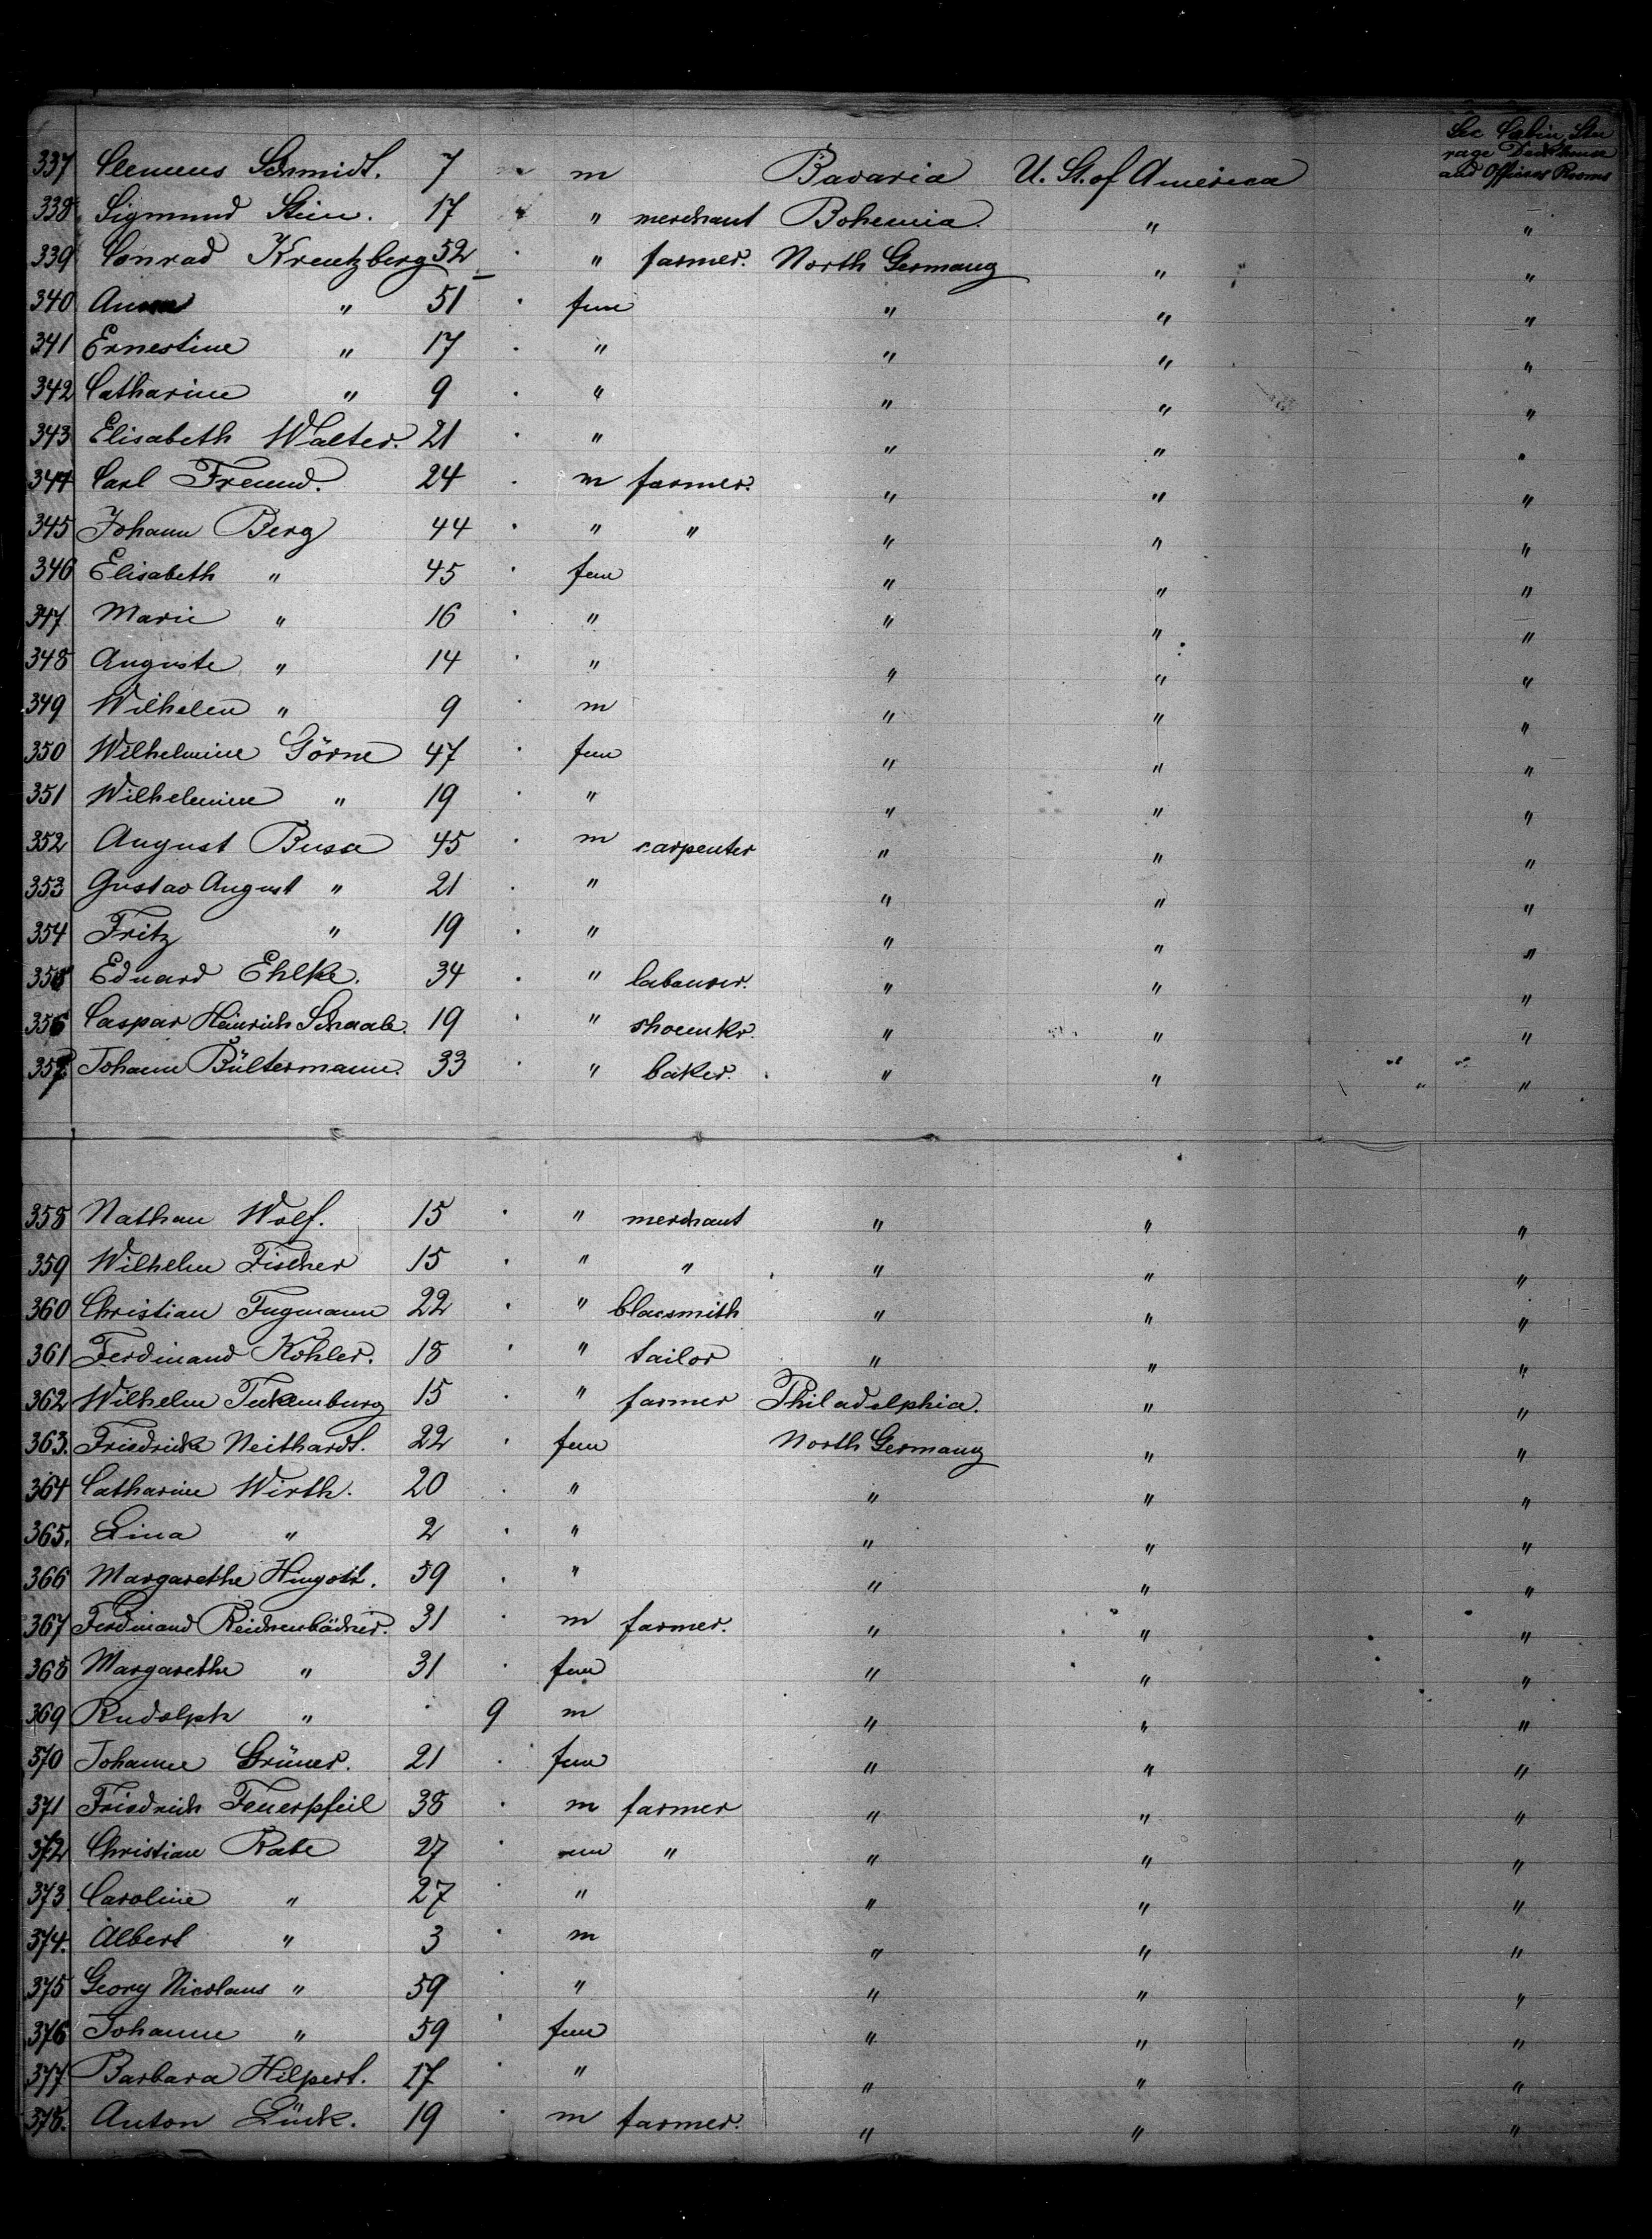 Sec Cabin, Stee
rage Deckhouse
and Officers Rooms
337 Clemens Schmidt. 7 " m Bavaria U. St. of America
338 Sigmund Stein. 17 " " merchant Bohemia. " "
339 Conrad Kreutzberg 52 · " farmer. North Germany " "
340 Anna " 51 · fem " " "
341 Ernestine " 17 · " " " "
342 Catharine " 9 · " " " "
343 Elisabeth Walter. 21 · " " " "
344 Carl Freund. 24 · m farmer. " " "
345 Johann Berg 44 · " " " " "
346 Elisabeth " 45 · fem " " "
347 Marie " 16 · " " " "
348 Auguste " 14 · " " " "
349 Wilhelm " 9 · m " " "
350 Wilhelmine Görne 47 · fem " " "
351 Wilhelmine " 19 · " " " "
352 August Busa 45 · m carpenter " " "
353 Gustav August " 21 · " " " "
354 Fritz " 19 · " " " "
355 Eduard Ehlke. 34 · " labourer. " " "
356 Caspar Heinrich Schaab. 19 · " shoemkr. " " "
357 Johann Bültermann. 33 · " baker. " " "
358 Nathan Wolf. 15 · " merchant " " "
359 Wilhelm Fischer 15 · " " " " "
360 Christian Fugmann 22 · " blacsmith " " "
361 Ferdinand Köhler. 18 · " tailor " " "
362 Wilhelm Teckemburg 15 · " farmer Philadelphia. " "
363. Friedricke Neithardt. 22 · fem North Germany " "
364 Catharine Wirth. 20 · " " " "
365. Lina " 2 · " " " "
366 Margarethe 59 · " " " "
367 Ferdinand Reichenbächer. 31 · m farmer. " " "
368 Margarethe " 31 · fem " " "
369 Rudolph " · 9 m " " "
370 Johanne Grüner. 21 · fem " " "
371 Friedrich Feuerpfeil 38 · m farmer " " "
372 Christian Rabe 27 · " " " "
373. Caroline " 27 · " " " "
374. Albert " 3 · m " " "
375 Georg Nicolaus " 59 · " " " "
376 Johanne " 59 · fem " " "
377 Barbara Hilpert. 17 · " " " "
378. Anton Lück. 19 · m farmer. " " "